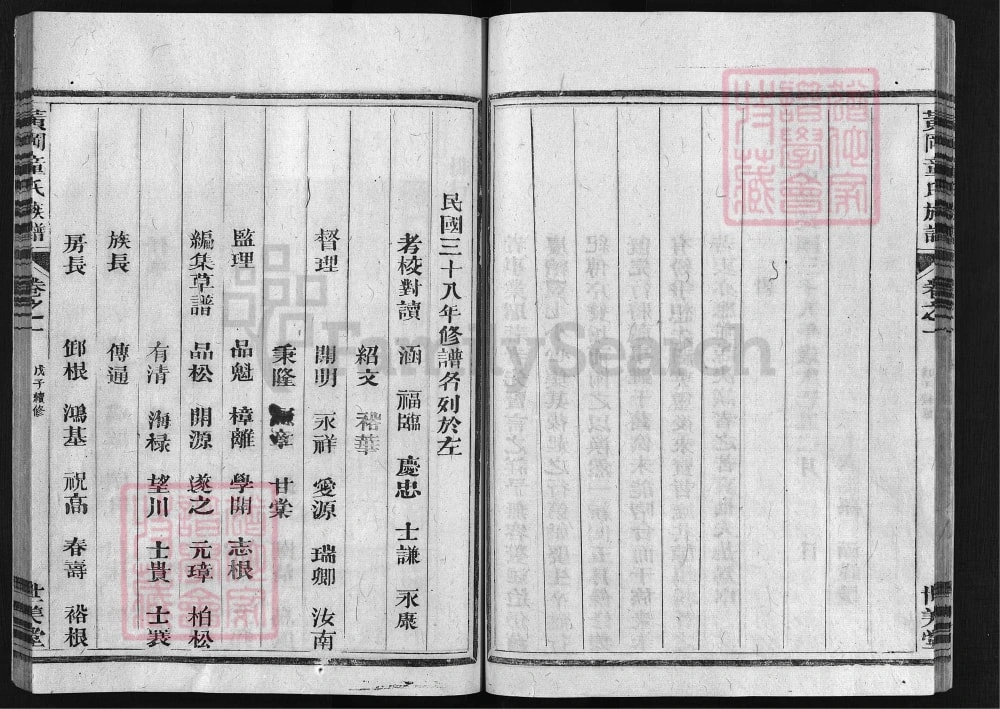 黃岡童氏族譜
卷之一
世美堂
民國三十八年修譜名列於左
考校對讀 涵 福臨 慶忠 士謙 永康
紹文 裕華
督理 開明 永祥 愛源 瑞卿 汝南
秉隆 章 甘棠
監理 品魁 樟離 學開 志根
編集草譜 品松 開源 遂之 元璋 柏松
有清 海祿 望川 士貴 士襄
族長 傳通
房長 卸根 鴻基 祝高 春壽 裕根
黃岡童氏族譜
卷之一
戊子續修
世美堂
FamilySearch